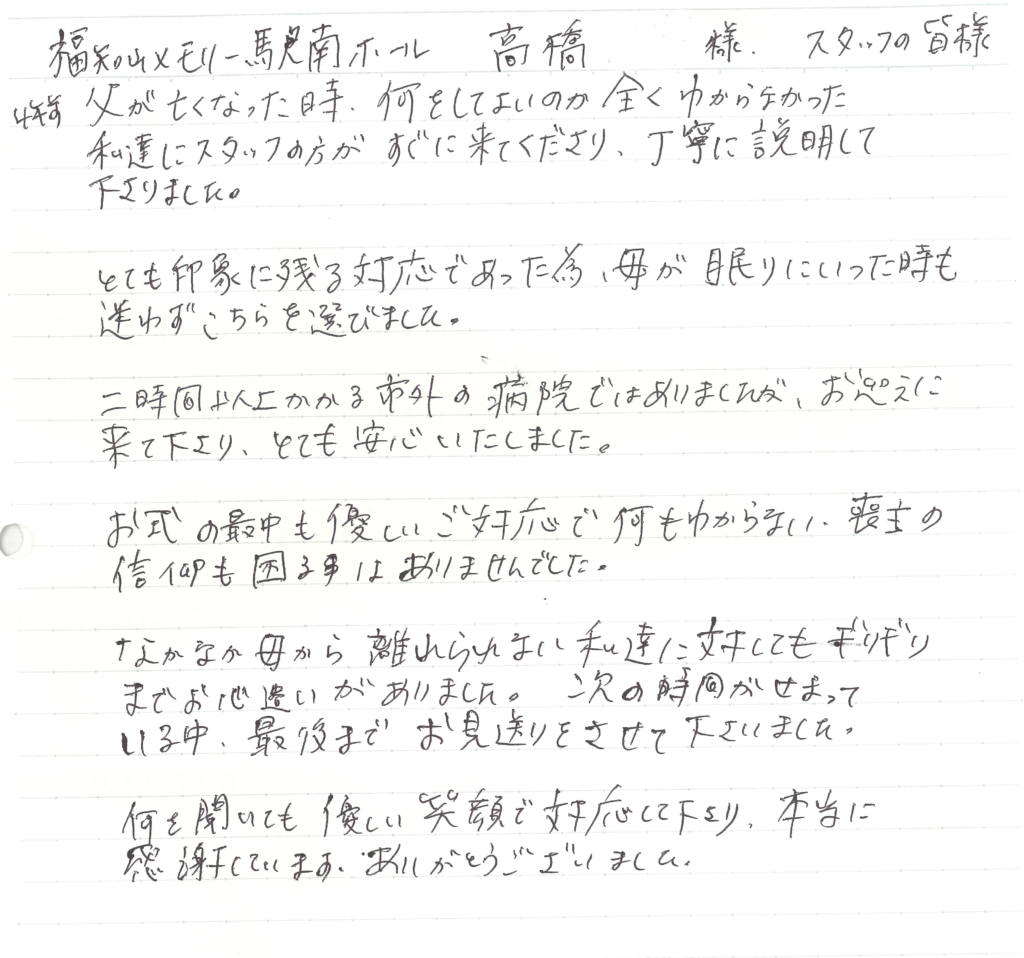 福知山メモリー駅南ホール 高橋 様. スタッフの皆様
4年前 父が亡くなった時、何をしてよいのか全くわからなかった
私達にスタッフの方がすぐに来てくださり、丁寧に説明して
下さりました。
とても印象に残る対応であった為、母が眠りにいった時も
迷わずこちらを選びました。
二時間以上かかる市外の病院ではありましたが、お迎えに
来て下さり、とても安心いたしました。
お式の最中も優しいご対応で何もわからない、喪主の
信仰も困る事はありませんでした。
なかなか母から離れられない私達に対してもギリギリ
までお心遣いがありました。 次の時間がせまって
いる中、最後までお見送りをさせて下さいました。
何を聞いても優しい笑顔で対応して下さり、本当に
感謝しています。ありがとうございました。